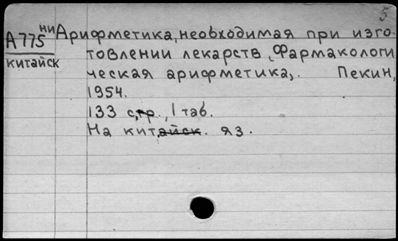 5
А775ни Арифметика, необходимая при изго-
китайск товлении лекарств, Фармакологи
ческая арифметика,. Пекин,
1954.
133 стр., 1 таб.
На китайск. яз.